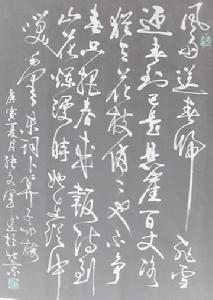 風雨送春歸 飛雪
迎春到已是懸崖百丈冰
猶有花枝俏俏也不爭
春只把春來報待到
山花爛漫時她在叢中
笑 詞卜算子詠梅
夏月